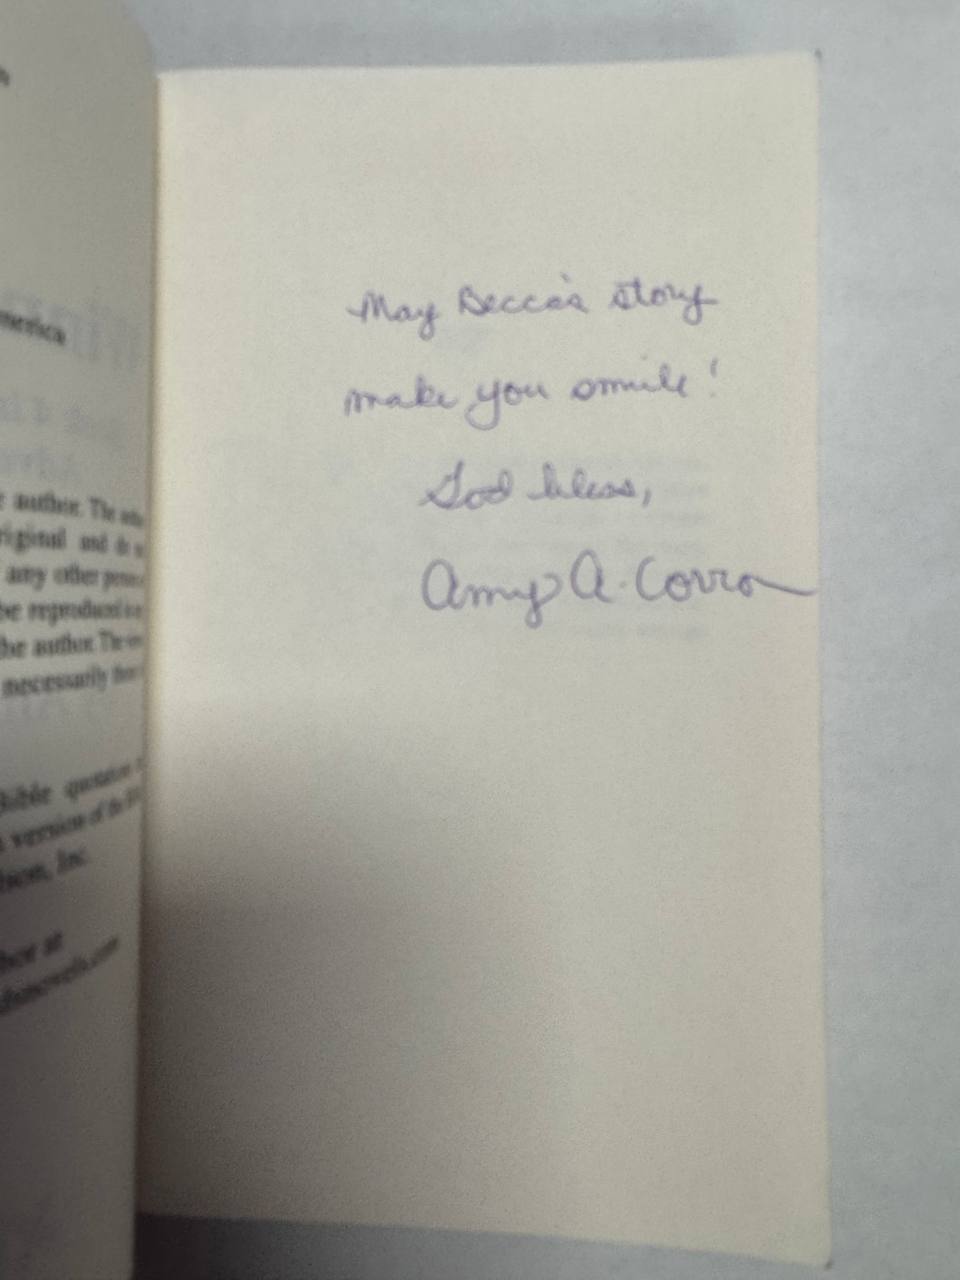 merica
author. The
riginal and do
any other
be reproduced
the author. The
necessarily
Bible quotation
version of the
Inc.
at
May Becca's story
make you smile!
God bless,
Amy A. Corron